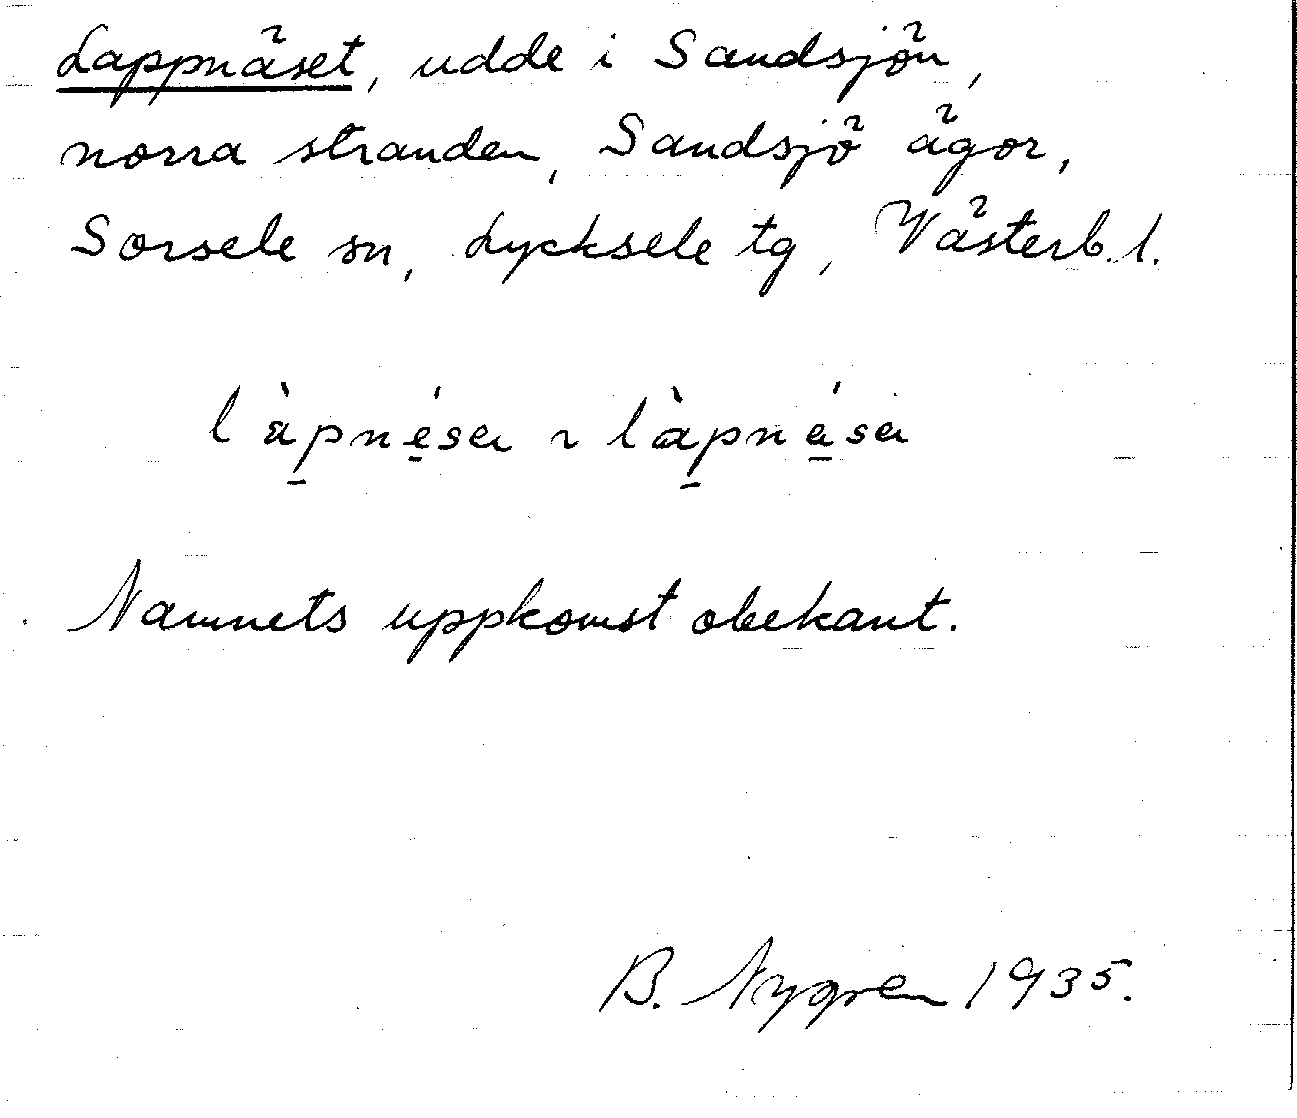 Lappnäset, udde i Sandsjön,
norra stranden, Sandsjö ägor,
Sorsele sn, Lycksele tg, Västerb. l.
làp̱nẹ́sa ~ làp̱ná̱sa
Namnets uppkomst obekant.
B. Nygren 1935.